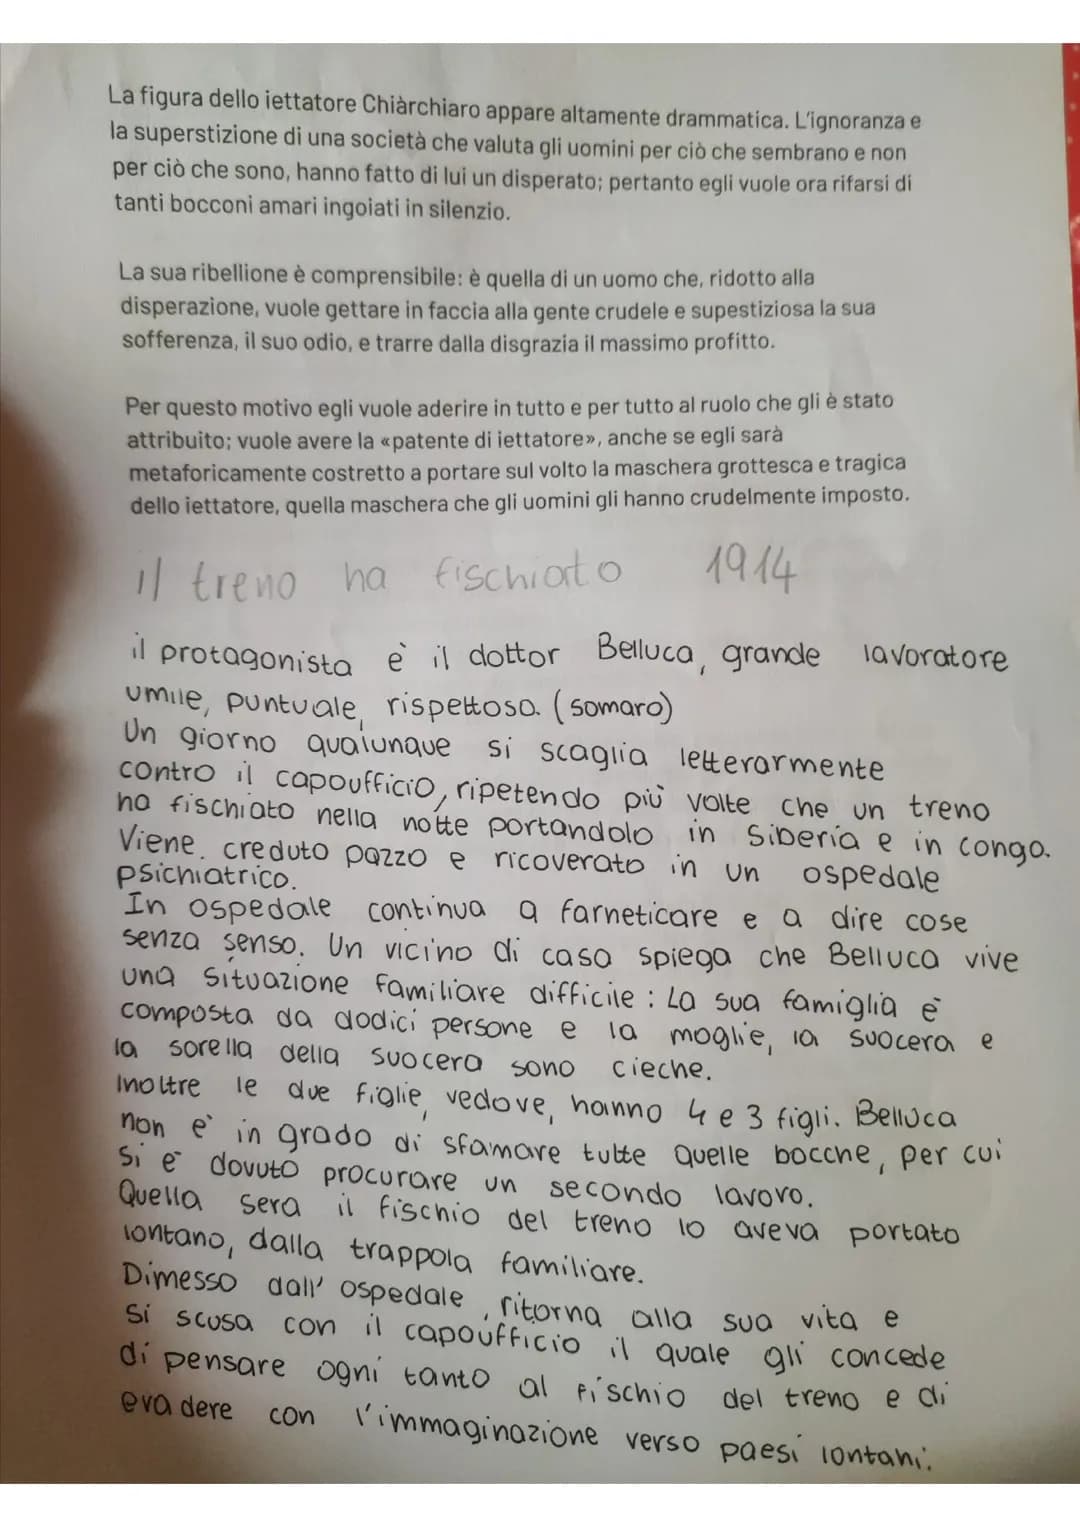 La figura dello iettatore Chiàrchiaro appare altamente drammatica. L'ignoranza e
la superstizione di una società che valuta gli uomini per ciò che sembrano e non
per ciò che sono, hanno fatto di lui un disperato; pertanto egli vuole ora rifarsi di
tanti bocconi amari ingoiati in silenzio.
La sua ribellione è comprensibile: è quella di un uomo che, ridotto alla
disperazione, vuole gettare in faccia alla gente crudele e supestiziosa la sua
sofferenza, il suo odio, e trarre dalla disgrazia il massimo profitto.
Per questo motivo egli vuole aderire in tutto e per tutto al ruolo che gli è stato
attribuito; vuole avere la «patente di iettatore», anche se egli sarà
metaforicamente costretto a portare sul volto la maschera grottesca e tragica
dello iettatore, quella maschera che gli uomini gli hanno crudelmente imposto.
il treno ha fischiato 1914
il protagonista è il dottor Belluca, grande lavoratore
umile, puntuale, rispettoso. (somaro)
Un giorno qualunque si scaglia letterarmente
contro il capoufficio, ripetendo più volte che un treno
ha fischiato nella notte portandolo in Siberia e in congo.
Viene creduto pazzo e ricoverato in un ospedale
psichiatrico.
In ospedale continua a farneticare e a dire cose
senza senso. Un vicino di casa spiega che Belluca vive
una situazione familiare difficile: La sua famiglia è
composta da dodici persone e la moglie, la suocera e
la sorella della suocera sono cieche.
Inoltre le due figlie, vedove, hanno 4 e 3 figli. Belluca
non è in grado di sfamare tutte quelle bocche, per cui
si è dovuto procurare un secondo lavoro.
Quella sera il fischio del treno lo aveva portato
lontano, dalla trappola familiare.
Dimesso dall'ospedale, ritorna alla sua vita e
si scusa con il capoufficio il quale gli concede
di pensare ogni tanto al fischio del treno e di
evadere con l'immaginazione verso paesi lontani.